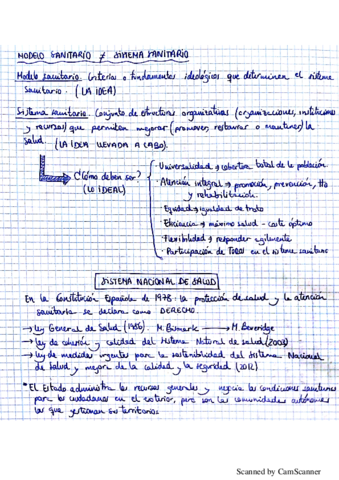 MODELO SANITARIO ≠ SISTEMA SANITARIO
Modelo sanitario. Criterios o fundamentos ideológicos que determinan el sistema
sanitario. (LA IDEA)
Sistema sanitario. Conjunto de estructuras organizativas (organizaciones, instituciones
y recursos) que permiten mejorar (promover, restaurar o mantener) la
salud. (LA IDEA LLEVADA A CABO).
¿Cómo deben ser?
(LO IDEAL)
· Universalidad → cobertura total de la población.
· Atención integral → promoción, prevención, tto
y rehabilitación.
· Equidad → igualdad de trato
· Eficiencia → máximo salud - coste óptimo
· Flexibilidad → responder agilmente
· Participación de TODOS en el sistema sanitario
SISTEMA NACIONAL DE SALUD
En la Constitución Española de 1978: la protección de salud y la atención
sanitaria se declara como DERECHO.
→ Ley General de Salud (1986). M. Bismarck → M. Beveridge
→ Ley de cohesión y calidad del Sistema Natonal de salud (2003)
→ Ley de medidas urgentes para la sostenibilidad del Sistema Nacional
de Salud y mejora de la calidad y la seguridad (2012)
* El Estado administra los recursos generales y negocia las condiciones sanitarias
para los ciudadanos en el exterior, pero son las comunidades autónomas
las que gestionan su territorio.
Scanned by CamScanner